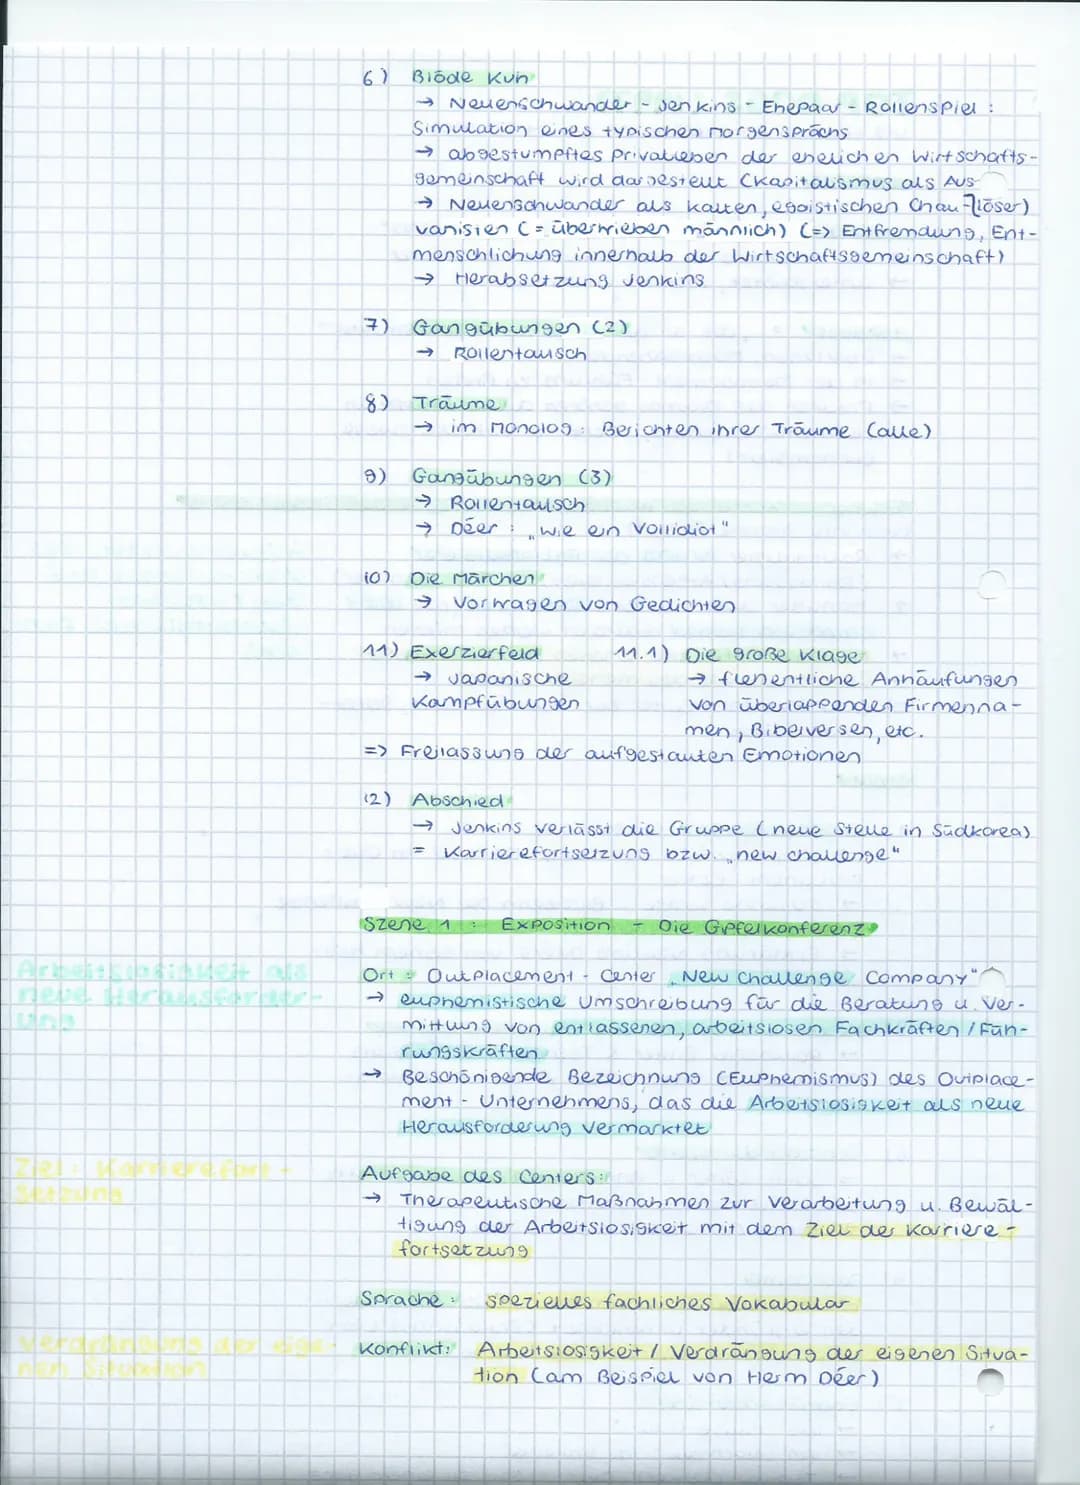 6) Blöde Kuh
→ Neuenschwander - Jenkins - Ehepaar - Rollenspiel :
Simulation eines typischen Morgensprächs
→ abgestumpftes Privatleben der ehelichen Wirtschafts-
gemeinschaft wird dargestellt (Kapitalismus als Aus-
löser)
→ Neuenschwander als kalten, egoistischen Chau-
vanisten (= übertrieben männlich) (=> Entfremdung, Ent-
menschlichung innerhalb der Wirtschaftsgemeinschaft)
→ Herabsetzung Jenkins
7) Gangübungen (2)
→ Rollentausch
8) Träume
→ im Monolog : Berichten ihrer Träume (alle)
9) Gangübungen (3)
→ Rollentausch
→ Déer : „wie ein Vollidiot"
10) Die Märchen
→ Vortragen von Gedichten
11) Exerzierfeld
→ Japanische
Kampfübungen
11.1) Die große Klage
→ flehentliche Anhäufungen
von überlappenden Firmenna-
men, Bibelversen, etc.
=> Freilassung der aufgestauten Emotionen
12) Abschied
→ Jenkins verlässt die Gruppe (neue Stelle in Südkorea)
= Karrierefortsetzung bzw. „new challenge"
Szene 1 : Exposition - Die Gipfelkonferenz
Arbeitslosigkeit als
neue Herausforder-
ung
Ort : Outplacement - Center „New Challenge Company"
→ euphemistische Umschreibung für die Beratung u. Ver-
mittlung von entlassenen, arbeitslosen Fachkräften / Füh-
rungskräften
→ Beschönigende Bezeichnung (Euphemismus) des Outplace-
ment - Unternehmens, das die Arbeitslosigkeit als neue
Herausforderung vermarktet
Ziel : Karrierefort-
setzung
Aufgabe des Centers:
→ Therapeutische Maßnahmen zur Verarbeitung u. Bewäl-
tigung der Arbeitslosigkeit mit dem Ziel der Karriere-
fortsetzung
Sprache : spezielles fachliches Vokabular
Verdrängung der eige-
nen Situation
Konflikt: Arbeitslosigkeit / Verdrängung der eigenen Situa-
tion (am Beispiel von Herrn Déer)